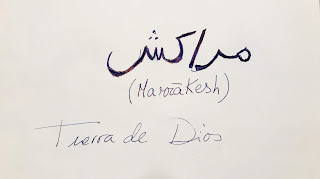 مراكش
(Marrākesh)
Tierra de Dios